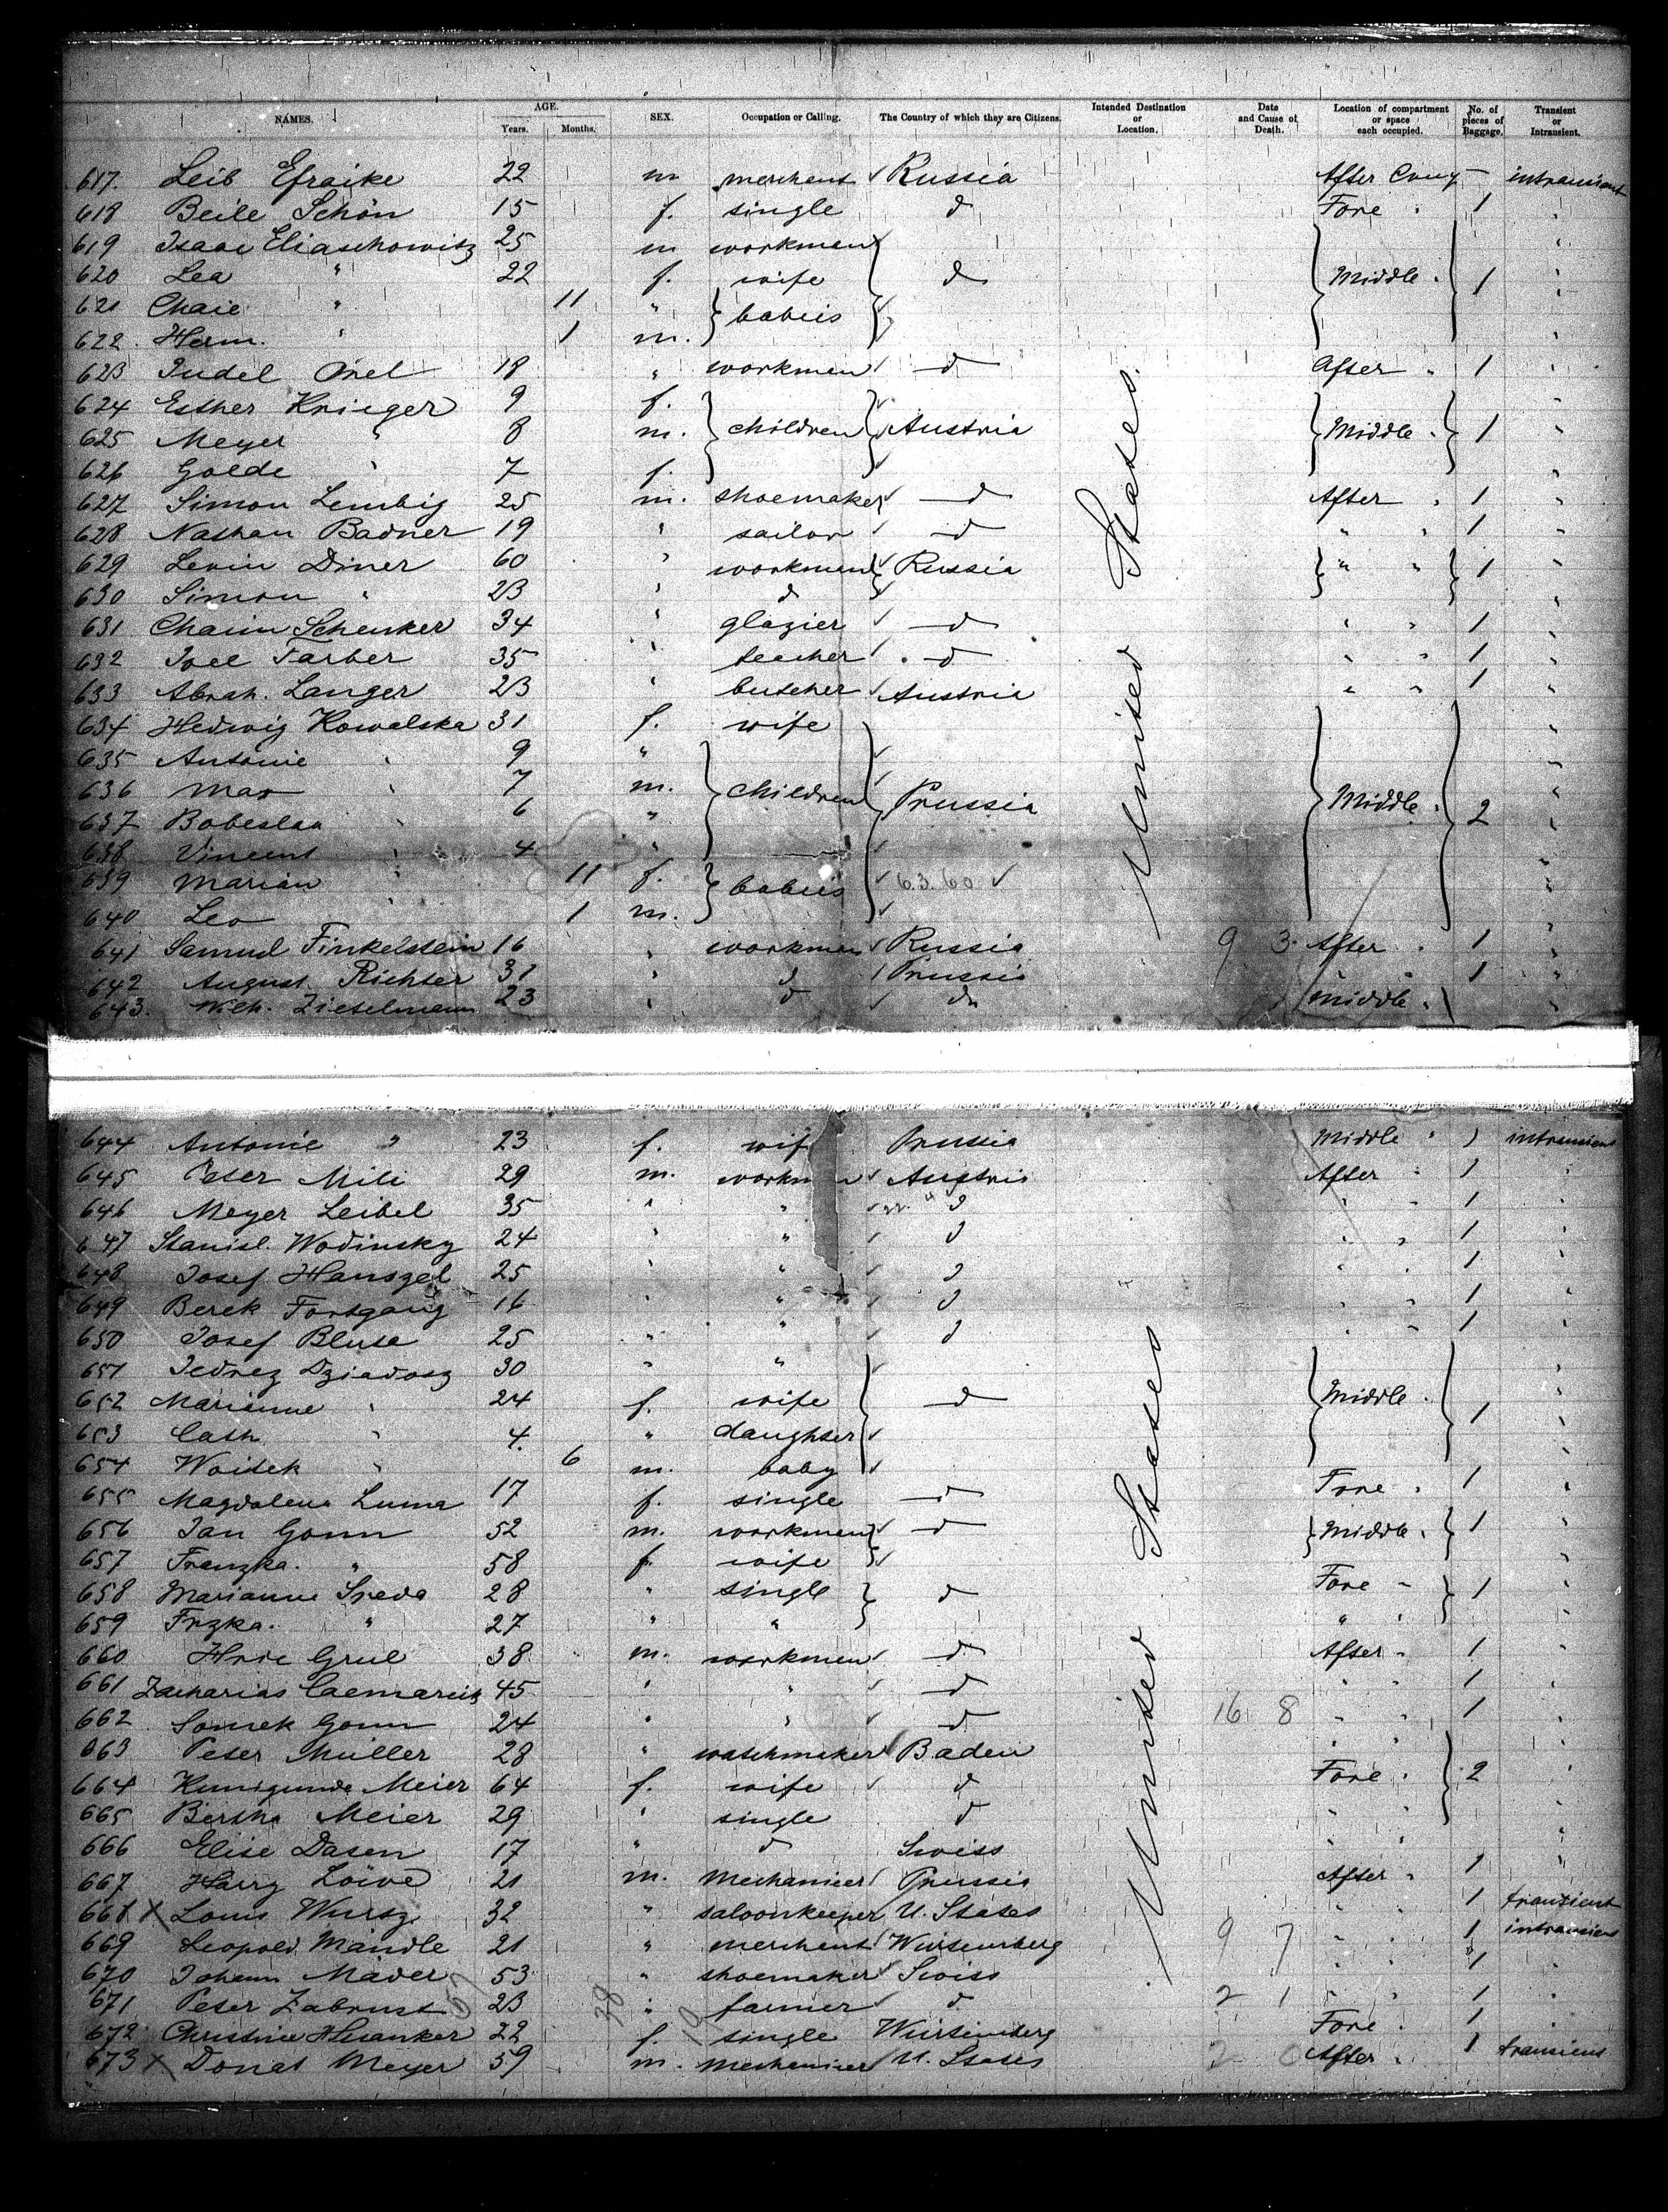 NAMES. AGE. Years. Months. SEX. Occupation or Calling. The Country of which they are Citizens. Intended Destination or Location. Date and Cause of Death. Location of compartment or space each occupied. No. of pieces of Baggage. Transient or Intransient.
617. Leib Efraike 22 m merchant ✓ Russia After Comp — intransient
618 Beile Schön 15 f. single d Fore " 1 "
619 Isaac Eliaschowitz 25 m workmen "
620 Lea " 22 f. wife d Middle " 1 "
621 Chaie " 11 " babies ✓
622. Herm. " 1 m. "
623 Judel Orel 18 " workmen ✓ d After " 1 "
624 Esther Krieger 9 f. "
625 Meyer " 8 m. children ✓ Austria Middle " 1 "
626 Golde " 7 f. "
627 Simon Lembig 25 m. shoemaker ✓ d After " 1 "
628 Nathan Badner 19 " sailor ✓ d " " 1 "
629 Levin Diner 60 " workmen ✓ Russia " " 1 "
630 Simon " 23 " d ✓ "
631 Chaim Schenker 34 " glazier ✓ d " " 1 "
632 Joel Farber 35 " teacher ✓ d " " 1 "
633 Abrah. Langer 23 " butcher ✓ Austria " " 1 "
634 Hedwig Kowalska 31 f. wife "
635 Antonie " 9 " ✓ "
636 Max " 7 m. children ✓ Prussia Middle " 2 "
637 Bobeslau " 6 " "
638 Vincent " 4 " ✓ "
639 Marian " 11 f. babies ✓ 6.3.60 ✓ "
640 Leo 1 m. ✓
641 Samuel Finkelstein 16 " workmen ✓ Russia 9 3. After " 1 "
642 August Richter 31 " d ✓ Prussia " " 1 "
643. Wilh. Zietelmann 23 " d ✓ do Middle " "
United States.
644 Antonie " 23 f. wif Prussia Middle " ) intransient
645 Peter Mili 29 m. workm n ✓ Austria After " 1 "
646 Meyer Leibel 35 " " ✓ d " " 1 "
647 Stanisl. Wodinsky 24 " " ✓ d " " 1 "
648 Josef Hanszel 25 " " ✓ d " " 1 "
649 Berek Fortgang 16 " " ✓ d " " 1 "
650 Josef Bluse 25 " " ✓ d " " 1 "
651 Jedrez Dziadosz 30 " " ✓ "
652 Marianne " 24 f. wife d Middle " 1 "
653 Cath. " 4. " daughter ✓ "
654 Woitek " 6 m. baby ✓ "
655 Magdalena Luma 17 f. single d Fore " 1 "
656 Jan Gonn 52 m. workmen ✓ d Middle " 1 "
657 Franzka. " 58 f. wife ✓ "
658 Marianne Sreda 28 " single d Fore " 1 "
659 Frzka. " 27 " " " " "
660 Hrie Grul 38 m. workmen ✓ d After " 1 "
661 Zacharias 45 " " ✓ d " " 1 "
662 Somek Gonn 24 " " ✓ d 16 8 " " 1 "
663 Peter Müller 28 " watchmaker ✓ Baden " " "
664 Kunigunde Meier 64 f. wife ✓ d Fore " 2 "
665 Bertha Meier 29 " single d " " "
666 Elise Dasen 17 " d Swiss " " "
667 Harry Löwe 21 m. Mechanicer ✓ Prussia After " 1 "
668 X Louis Wurtz 32 " saloonkeeper U. States " " 1 transient
669 Leopold Mändle 21 " merchant ✓ Würtemberg 9 7 " " 1 intransient
670 Johann Mäder 53 " shoemaker ✓ Swiss " " 1
671 Peter Zabrust 23 " farmer ✓ d 2 1 " " 1 "
672 Christine 22 f. single Würtemberg Fore " 1 "
673 X Donat Meyer 59 m. Mechanicer ✓ U. States 2 0 After " 1 transient
United States